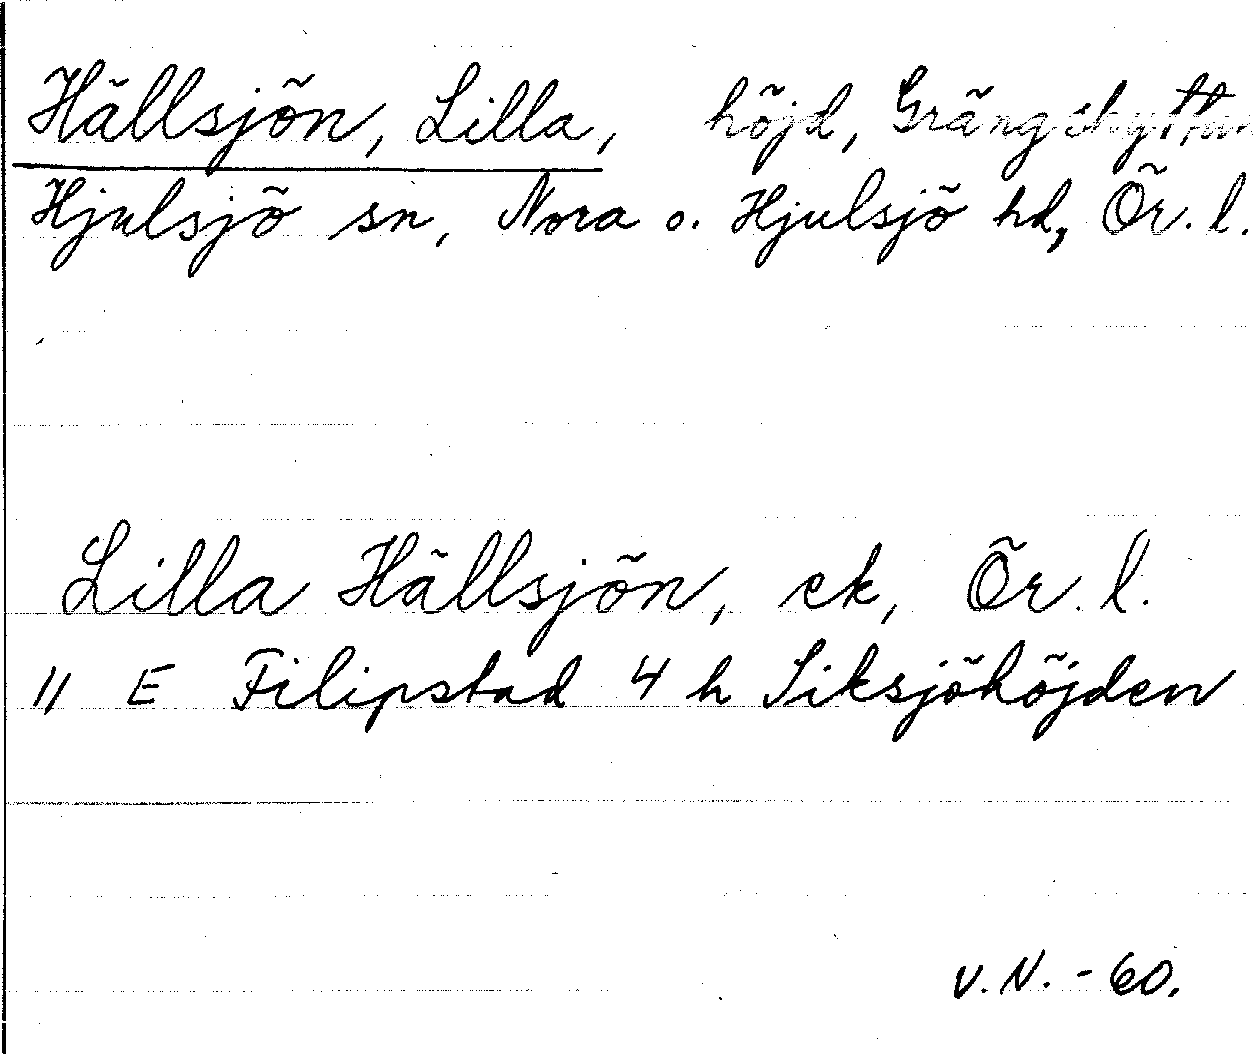 Hällsjön, Lilla, höjd, Grängshyttan
Hjulsjö sn, Nora o. Hjulsjö hd, Ör. l.
Lilla Hällsjön, ek, Ör. l.
11 E Filipstad 4 h Siksjöhöjden
V. N. - 60.